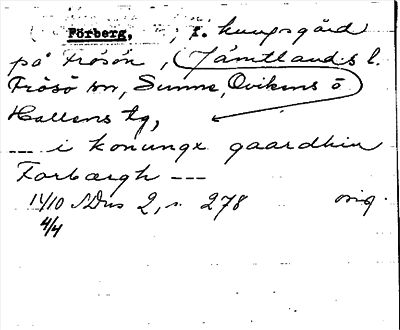 Förberg, f. kungsgård
på Frösön, (Jämtlands l.
Frösö sn, Sunne, Ovikens o
Hallens tg,
--- i konungx gaardhin
Forbærgh ---
14/10 SDns 2, s. 278 orig.
4/4